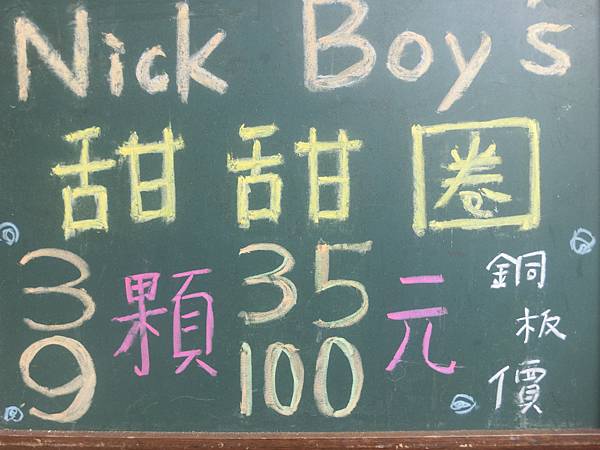 Nick Boy's
甜甜圈
3顆35元
9顆100元
銅板價